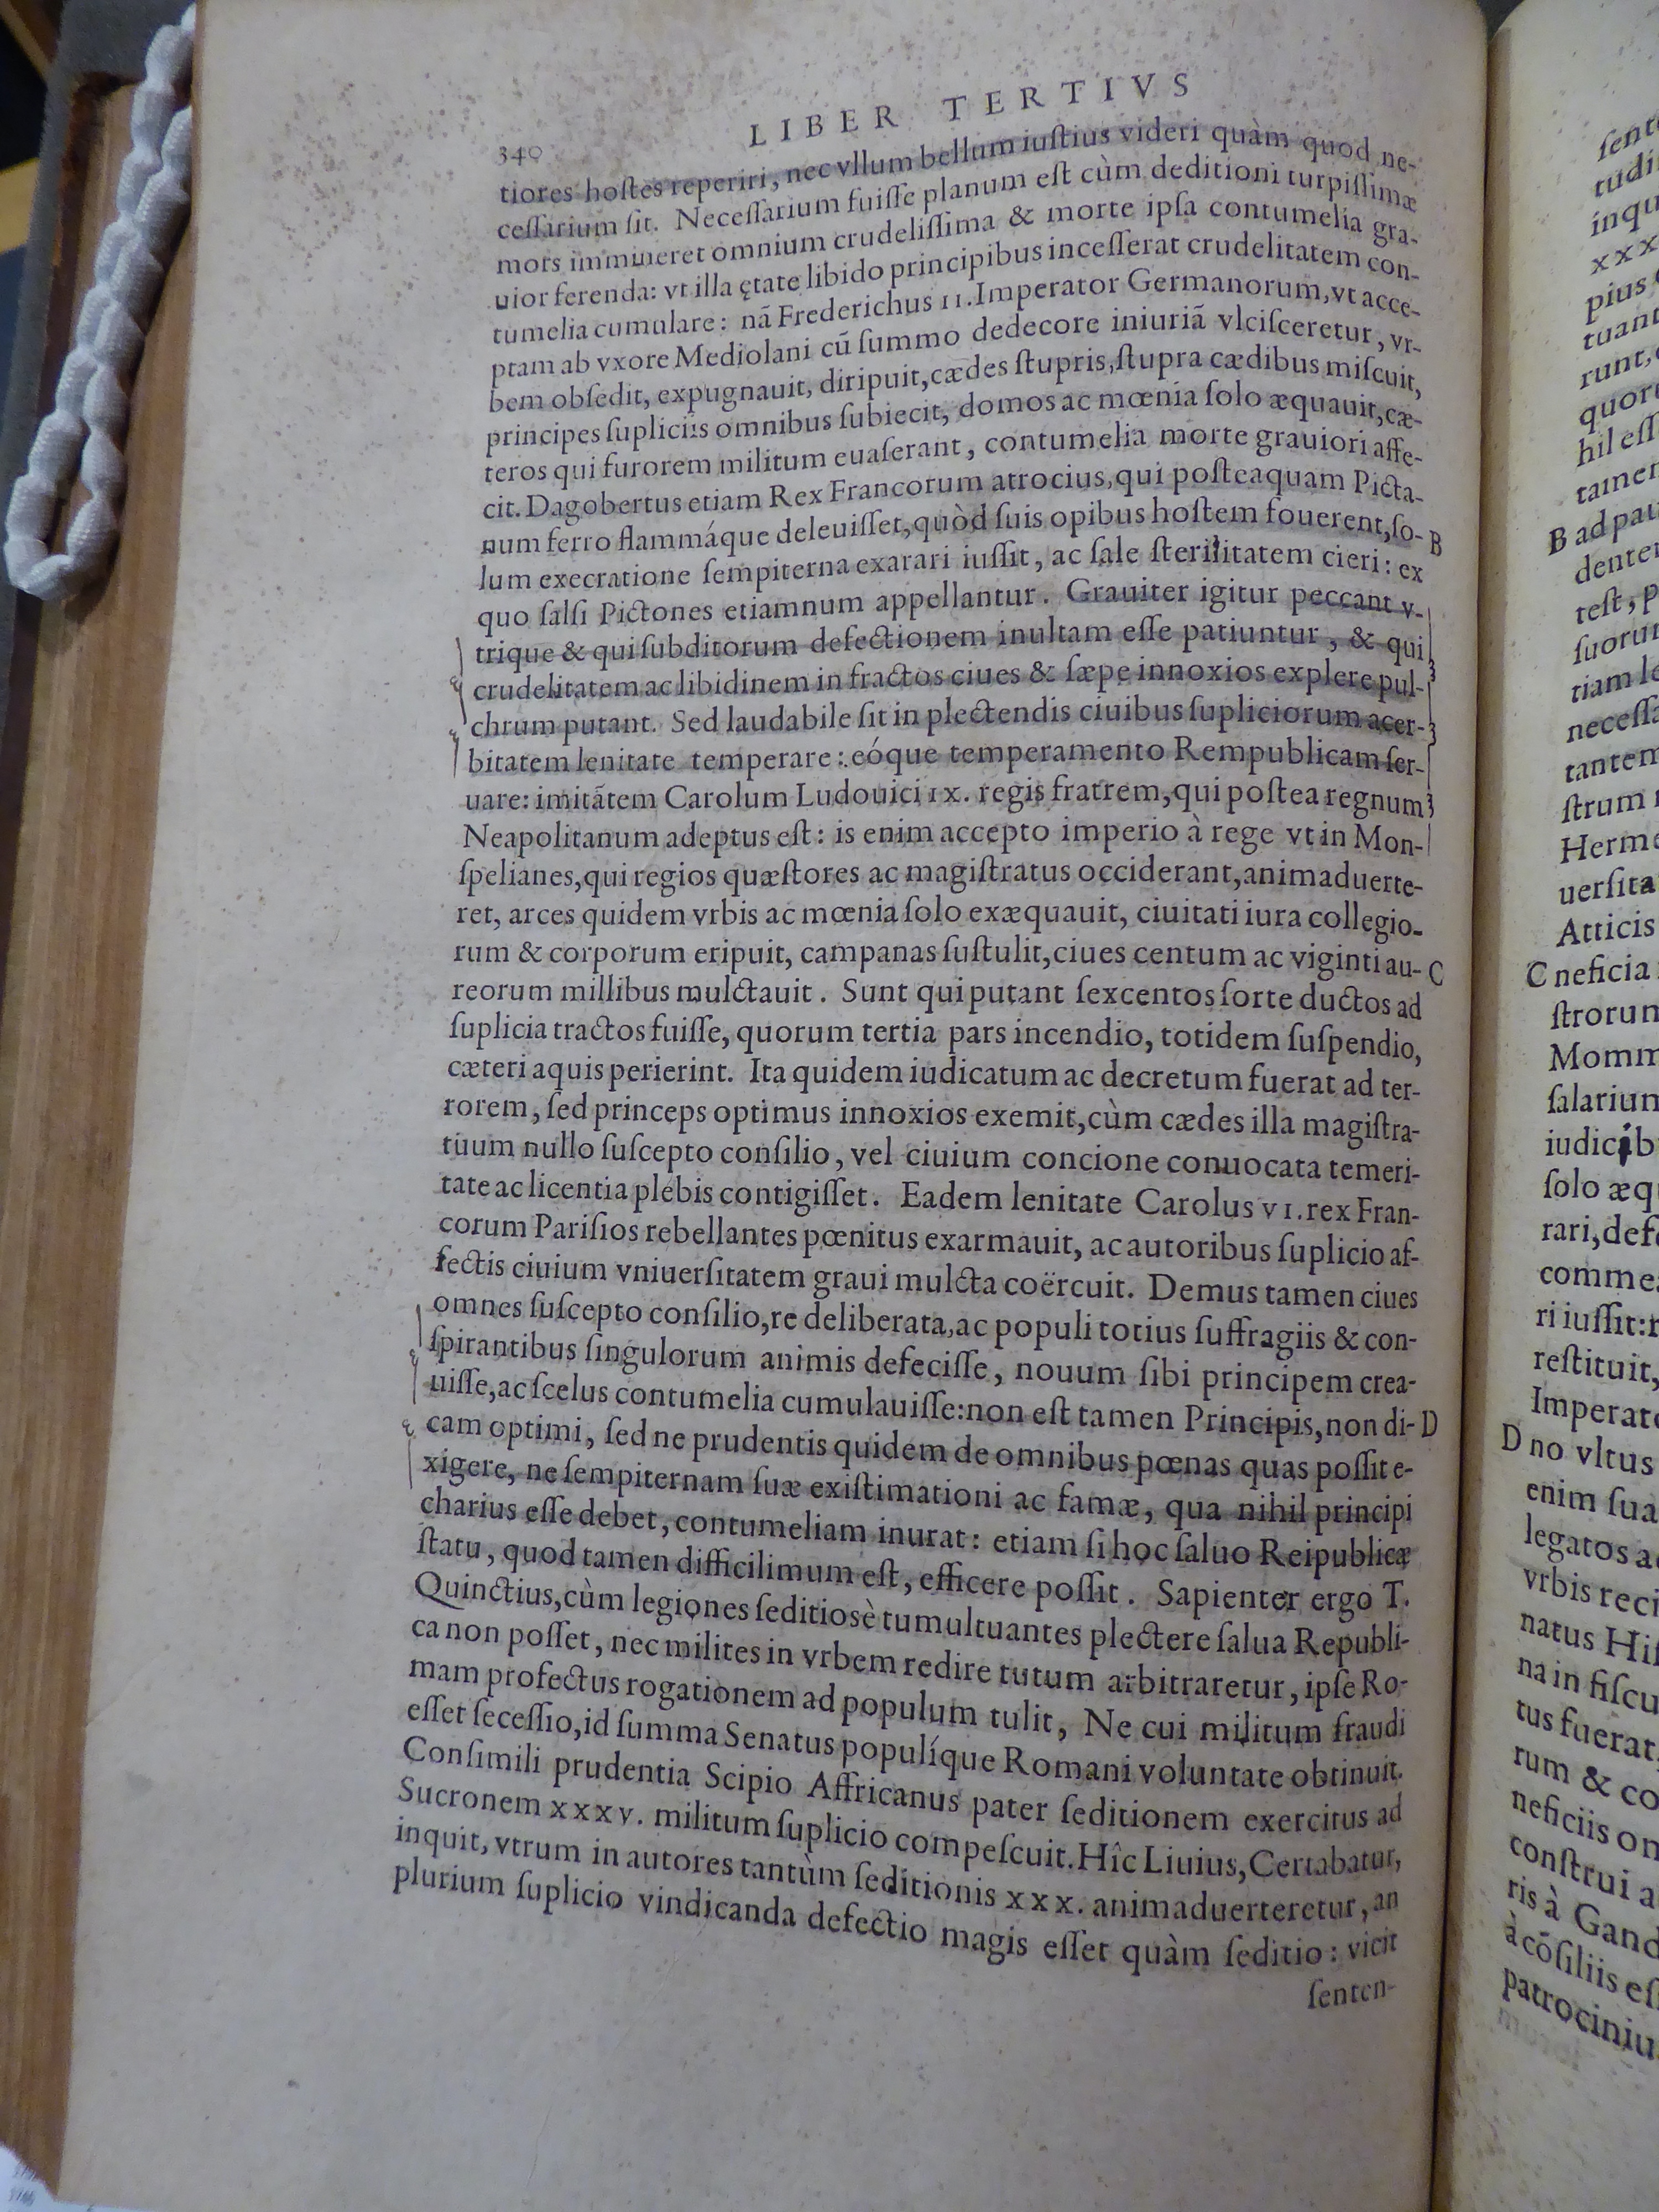 340 LIBER TERTIVS
tiores hostes reperiri, nec vllum bellum iustius videri quàm quod ne-
cessarium sit. Necessarium fuisse planum est cùm deditioni turpissimæ
mors immineret omnium crudelissima & morte ipsa contumelia gra-
uior ferenda: vt illa ętate libido principibus incesserat crudelitatem con-
tumelia cumulare: nã Frederichus II. Imperator Germanorum, vt acce-
ptam ab vxore Mediolani cũ summo dedecore iniuriã vlcisceretur, vr-
bem obsedit, expugnauit, diripuit, cædes stupris, stupra cædibus miscuit,
principes supliciis omnibus subiecit, domos ac mœnia solo æquauit, cæ-
teros qui furorem militum euaserant, contumelia morte grauiori affe-
cit. Dagobertus etiam Rex Francorum atrocius, qui posteaquam Picta-
num ferro flammáque deleuisset, quòd suis opibus hostem fouerent, so- B
lum execratione sempiterna exarari iussit, ac sale sterilitatem cieri: ex
quo salsi Pictones etiamnum appellantur. Grauiter igitur peccant v-
trique & qui subditorum defectionem inultam esse patiuntur, & qui
crudelitatem ac libidinem in fractos ciues & sæpe innoxios explere pul-
chrum putant. Sed laudabile sit in plectendis ciuibus supliciorum acer-
bitatem lenitate temperare: eóque temperamento Rempublicam ser-
uare: imitãtem Carolum Ludouici IX. regis fratrem, qui postea regnum
Neapolitanum adeptus est: is enim accepto imperio à rege vt in Mon-
spelianes, qui regios quæstores ac magistratus occiderant, animaduerte-
ret, arces quidem vrbis ac mœnia solo exæquauit, ciuitati iura collegio-
rum & corporum eripuit, campanas sustulit, ciues centum ac viginti au- C
reorum millibus mulctauit. Sunt qui putant sexcentos sorte ductos ad
suplicia tractos fuisse, quorum tertia pars incendio, totidem suspendio,
cæteri aquis perierint. Ita quidem iudicatum ac decretum fuerat ad ter-
rorem, sed princeps optimus innoxios exemit, cùm cædes illa magistra-
tuum nullo suscepto consilio, vel ciuium concione conuocata temeri-
tate ac licentia plebis contigisset. Eadem lenitate Carolus VI. rex Fran-
corum Parisios rebellantes pœnitus exarmauit, ac autoribus suplicio af-
fectis ciuium vniuersitatem graui mulcta coërcuit. Demus tamen ciues
omnes suscepto consilio, re deliberata, ac populi totius suffragiis & con-
spirantibus singulorum animis defecisse, nouum sibi principem crea-
uisse, ac scelus contumelia cumulauisse: non est tamen Principis, non di- D
cam optimi, sed ne prudentis quidem de omnibus pœnas quas possit e-
xigere, ne sempiternam suæ existimationi ac famæ, qua nihil principi
charius esse debet, contumeliam inurat: etiam si hoc saluo Reipublicæ
statu, quod tamen difficilimum est, efficere possit. Sapienter ergo T.
Quinctius, cùm legiones seditiosè tumultuantes plectere salua Republi-
ca non posset, nec milites in vrbem redire tutum arbitraretur, ipse Ro-
mam profectus rogationem ad populum tulit, Ne cui militum fraudi
esset secessio, id summa Senatus populíque Romani voluntate obtinuit.
Consimili prudentia Scipio Affricanus pater seditionem exercitus ad
Sucronem xxxv. militum suplicio compescuit. Hîc Liuius, Certabatur,
inquit, vtrum in autores tantùm seditionis xxx. animaduerteretur, an
plurium suplicio vindicanda defectio magis esset quàm seditio: vicit
senten-
tudi
inqu
xxx
pius
tuant
runt,
quor
hil ess
tamen
B ad pat
denter
test, p
suorum
tiam le
necessa
tantem
strum
Herme
uersita
Atticis
C neficia
strorum
Momm
salarium
iudicib
solo æq
rari, def
commea
ri iussit:
restituit,
Imperato
D no vltus
enim sua
legatos a
vrbis reci
natus His
na in fiscu
tus fuerat,
rum & co
neficiis on
construi a
ris à Gand
à cōsiliis es
patrociniu